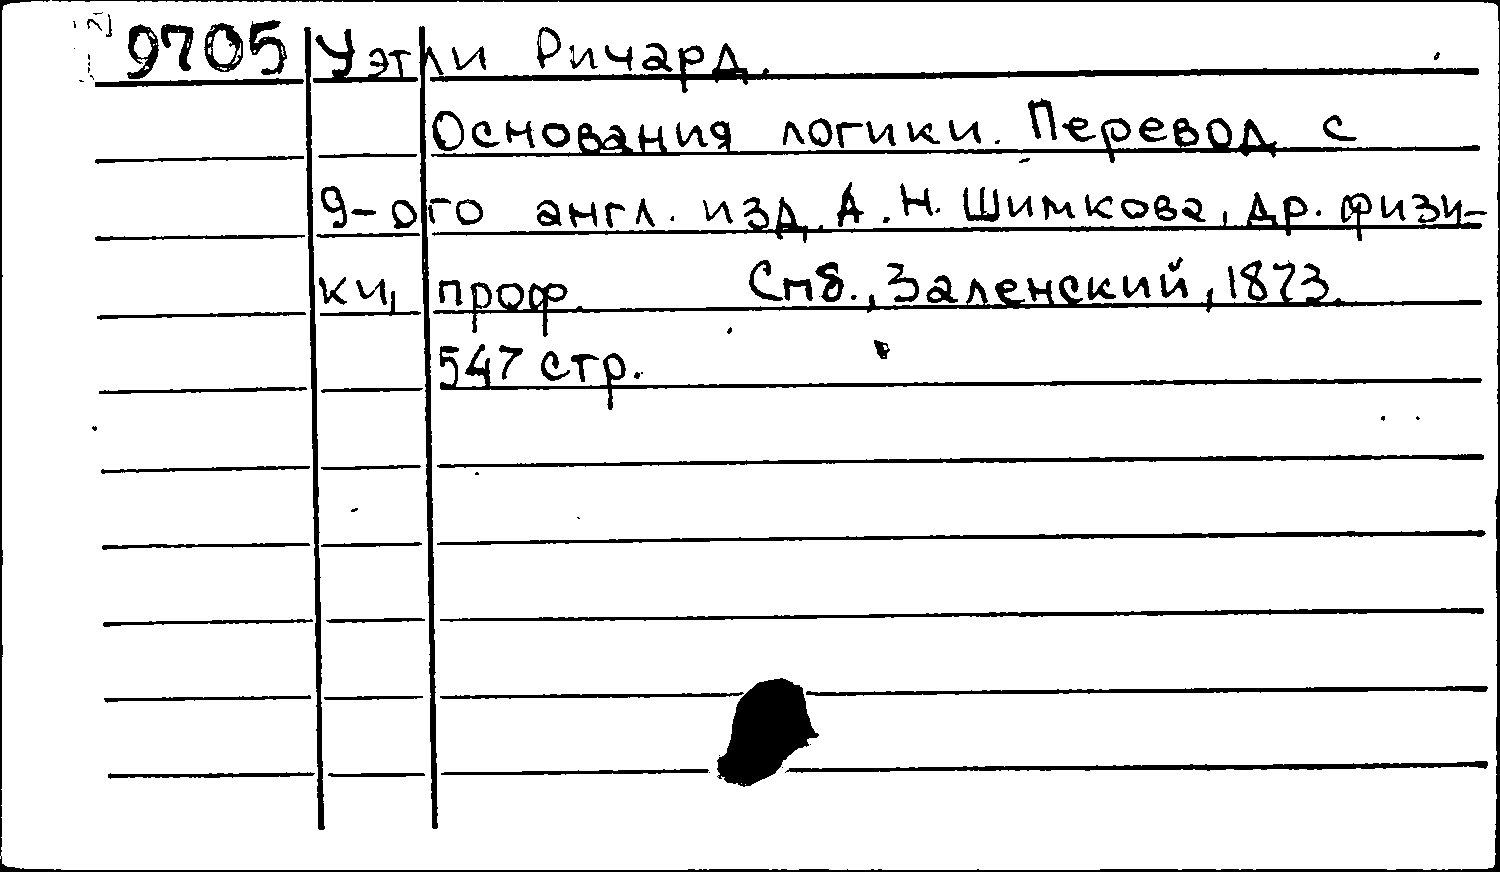 9705 Уэтли Ричард.
Основания логики. Перевод с
9-ого англ. изд. А. Н. Шимкова, др. физи-
ки, проф. Спб., Заленский, 1873.
547 стр.